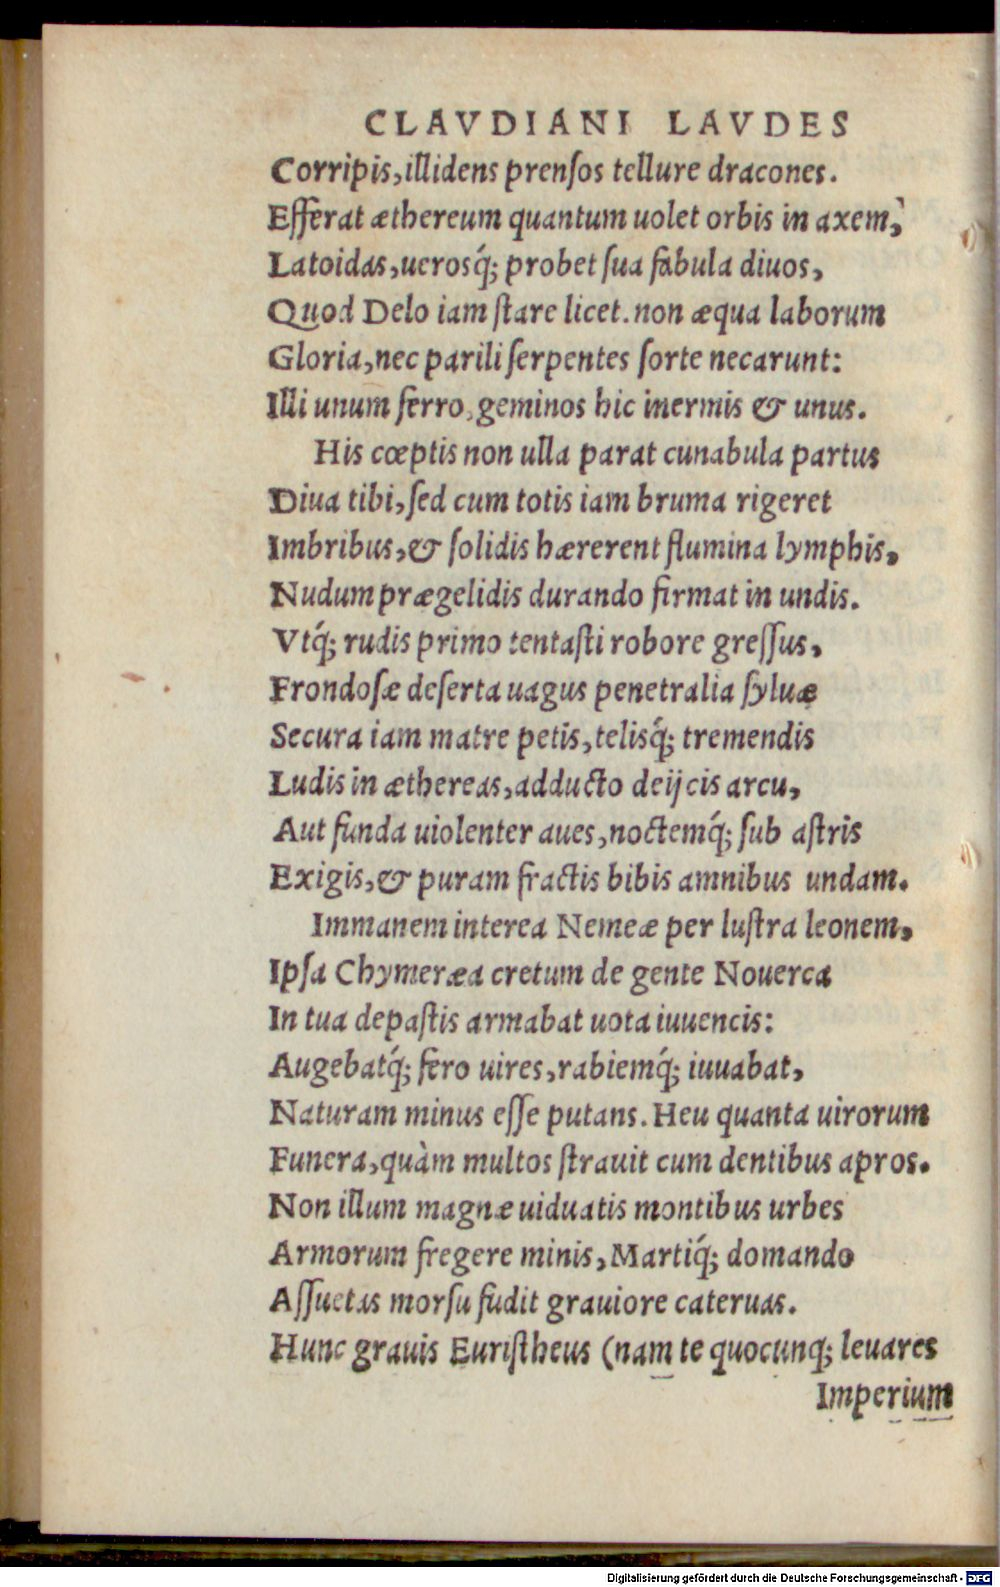 CLAVDIANI LAVDES
Corripis, illidens prenſos tellure dracones.
Efferat æthereum quantum uolet orbis in axem,
Latoidas, uerosq́; probet ſua fabula diuos,
Quod Delo iam ſtare licet. non æqua laborum
Gloria, nec parili ſerpentes ſorte necarunt:
Illi unum ferro, geminos hic inermis & unus.
His cœptis non ulla parat cunabula partus
Diua tibi, ſed cum totis iam bruma rigeret
Imbribus, & ſolidis hærerent flumina lymphis,
Nudum prægelidis durando firmat in undis.
Vtq́; rudis primo tentaſti robore greſſus,
Frondoſæ deſerta uagus penetralia ſyluæ
Secura iam matre petis, telisq́; tremendis
Ludis in æthereas, adducto deijcis arcu,
Aut funda uiolenter aues, noctemq́; ſub aſtris
Exigis, & puram fractis bibis amnibus undam.
Immanem interea Nemeæ per luſtra leonem,
Ipſa Chymeræa cretum de gente Nouerca
In tua depaſtis armabat uota iuuencis:
Augebatq́; fero uires, rabiemq́; iuuabat,
Naturam minus eſſe putans. Heu quanta uirorum
Funera, quàm multos ſtrauit cum dentibus apros.
Non illum magnæ uiduatis montibus urbes
Armorum fregere minis, Martiq́; domando
Aſſuetas morſu fudit grauiore cateruas.
Hunc grauis Euriſtheus (nam te quocunq; leuares
Imperium
Digitalisierung gefördert durch die Deutsche Forschungsgemeinschaft - DFG